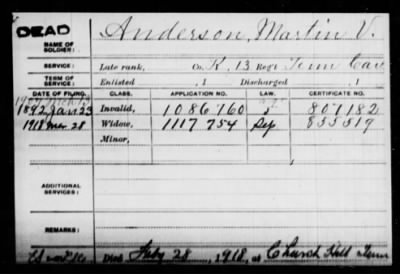 DEAD
Anderson, Martin V.
NAME OF SOLDIER:
SERVICE: Late rank, Co. K, 13 Reg't Tenn Cav
TERM OF SERVICE: Enlisted , 1 Discharged , 1
DATE OF FILING. CLASS. APPLICATION NO. LAW. CERTIFICATE NO.
1892 Jan 23 Invalid, 1086760 807182
1918 Mar 28 Widow, 1117754 855519
Minor,
ADDITIONAL SERVICES:
REMARKS:
Died Feby 28, 1918, at Church Hill Tenn